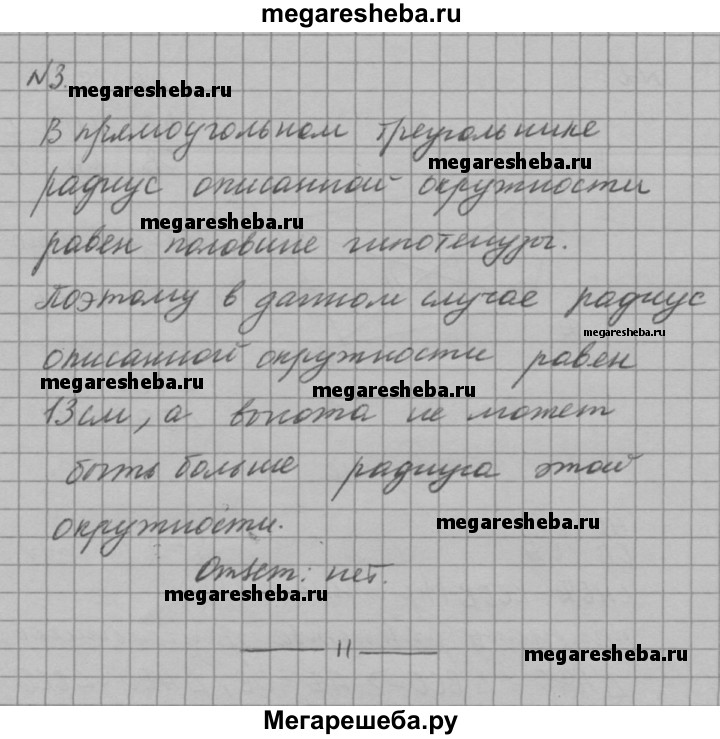 megaresheba.ru
№3.
megaresheba.ru
В прямоугольном треугольнике
megaresheba.ru
радиус описанной окружности
megaresheba.ru
равен половине гипотенузы.
Поэтому в данном случае радиус
megaresheba.ru
описанной окружности равен
megaresheba.ru
megaresheba.ru
13см, а высота не может
быть больше радиуса этой
окружности.
megaresheba.ru
Ответ: нет.
megaresheba.ru
11
megaresheba.ru
Мегарешеба.ру